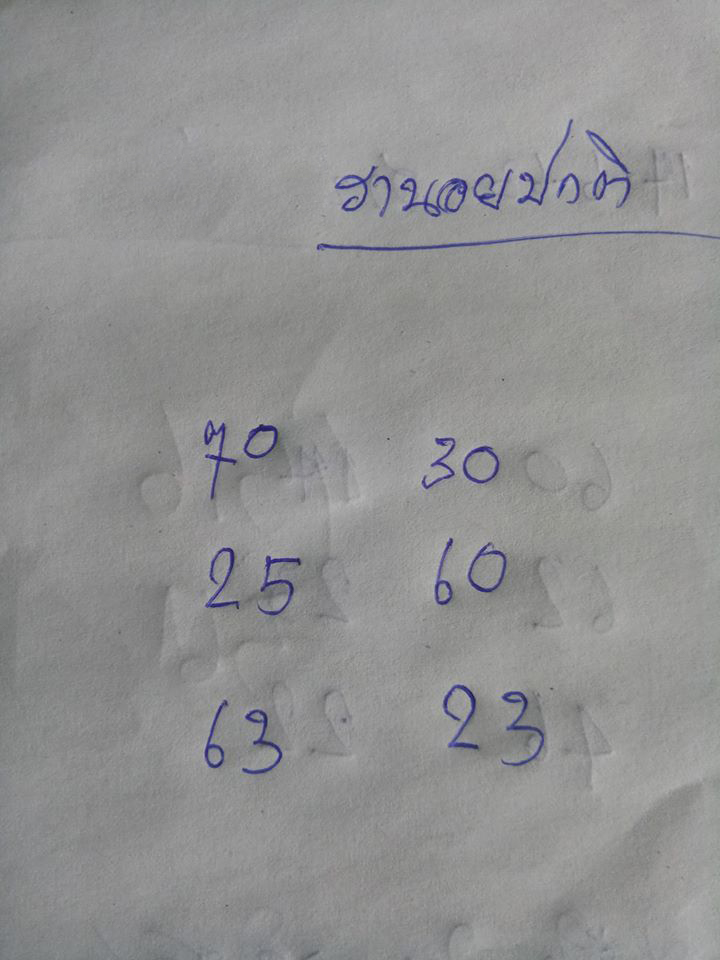 ฮานอยปกติ
70 30
25 60
63 23